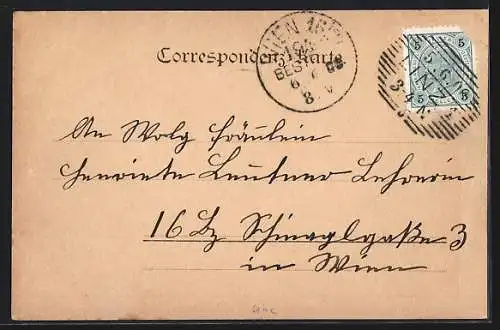 Correspondenz-Karte
WIEN 16/1
BEST
8 V
5 5
LINZ
An Wolg Fräulein
Henriete Leutner Lehrerin
16 Bz Schinaglgaße 3
in Wien